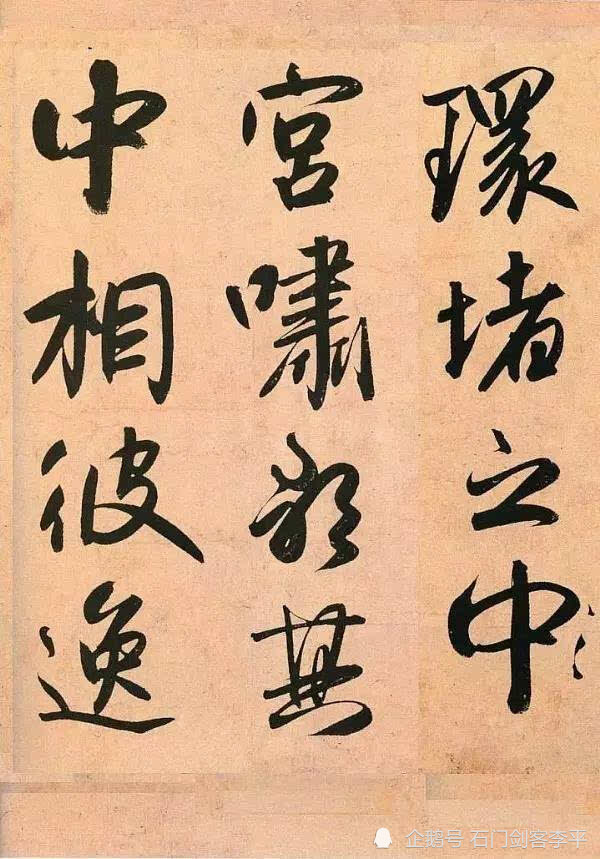 環堵之中
宮嘯無
中相彼逸
企鹅号 石门剑客李平